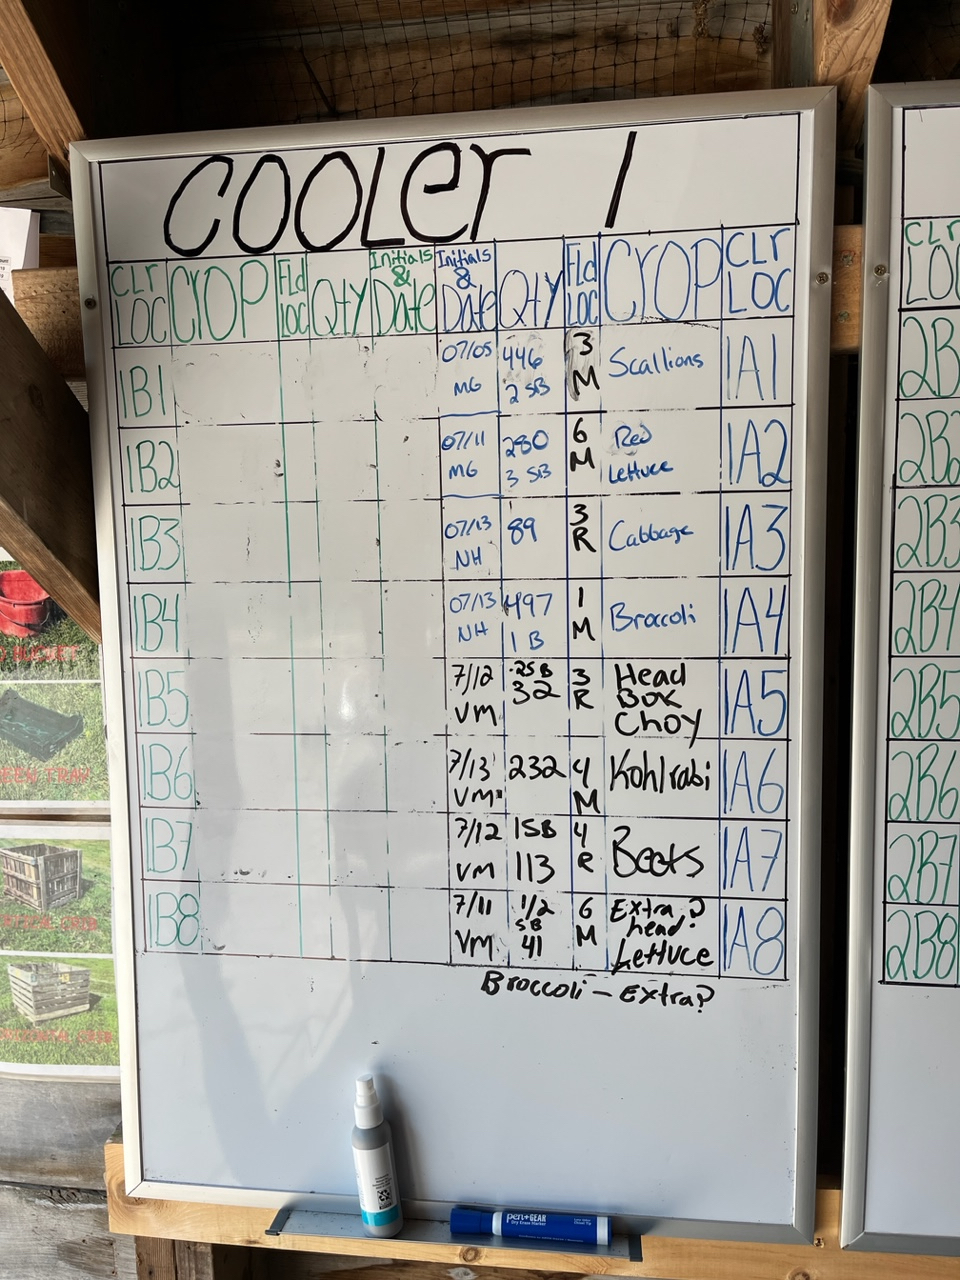 COOLer 1
CLr LOC CrOP Fld LOC Qty Initials & Date Initials & Date Qty Fld LOC CrOP CLr LOC
1B1 07/05 MG 446 2 SB 3 M Scallions 1A1
1B2 07/11 MG 280 3 SB 6 M Red Lettuce 1A2
1B3 07/13 NH 89 3 R Cabbage 1A3
1B4 07/13 NH 497 1 B 1 M Broccoli 1A4
1B5 7/12 VM .25B 32 3 R Head Box Choy 1A5
1B6 7/13 VM 232 4 M Kohlrabi 1A6
1B7 7/12 VM 1SB 113 4 R Beets 1A7
1B8 7/11 VM 1/2 SB 41 6 M Extra? head Lettuce 1A8
Broccoli - Extra?
CLr
LOC
2B
2B2
2B3
2B4
2B5
2B6
2B7
2B8
pen+GEAR
Dry Erase Marker